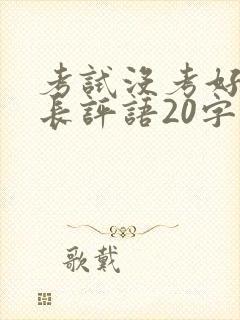 考試沒考好
長評語20字
歌戴